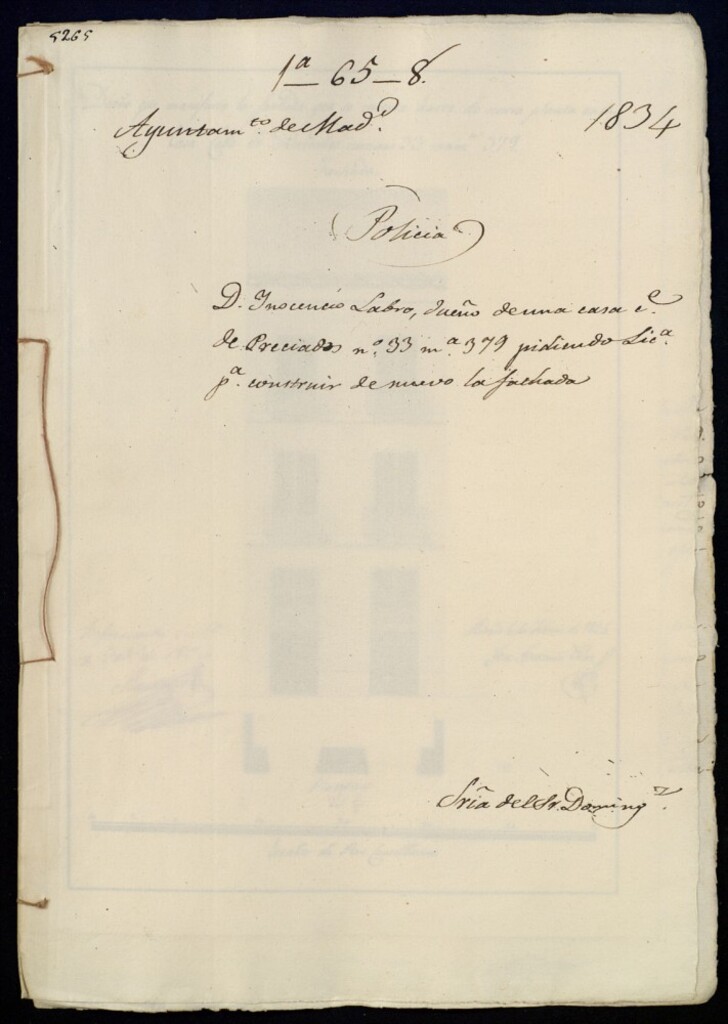 5265
1ª_65_8.
Ayuntamto. de Madd.
1834
Policia
D. Inocencio Labro, dueño de una casa ce.
de Preciados nº. 33 mª. 379 pidiendo Licª.
pª. construir de nuevo la fachada
Sría del Sr. Domingz.